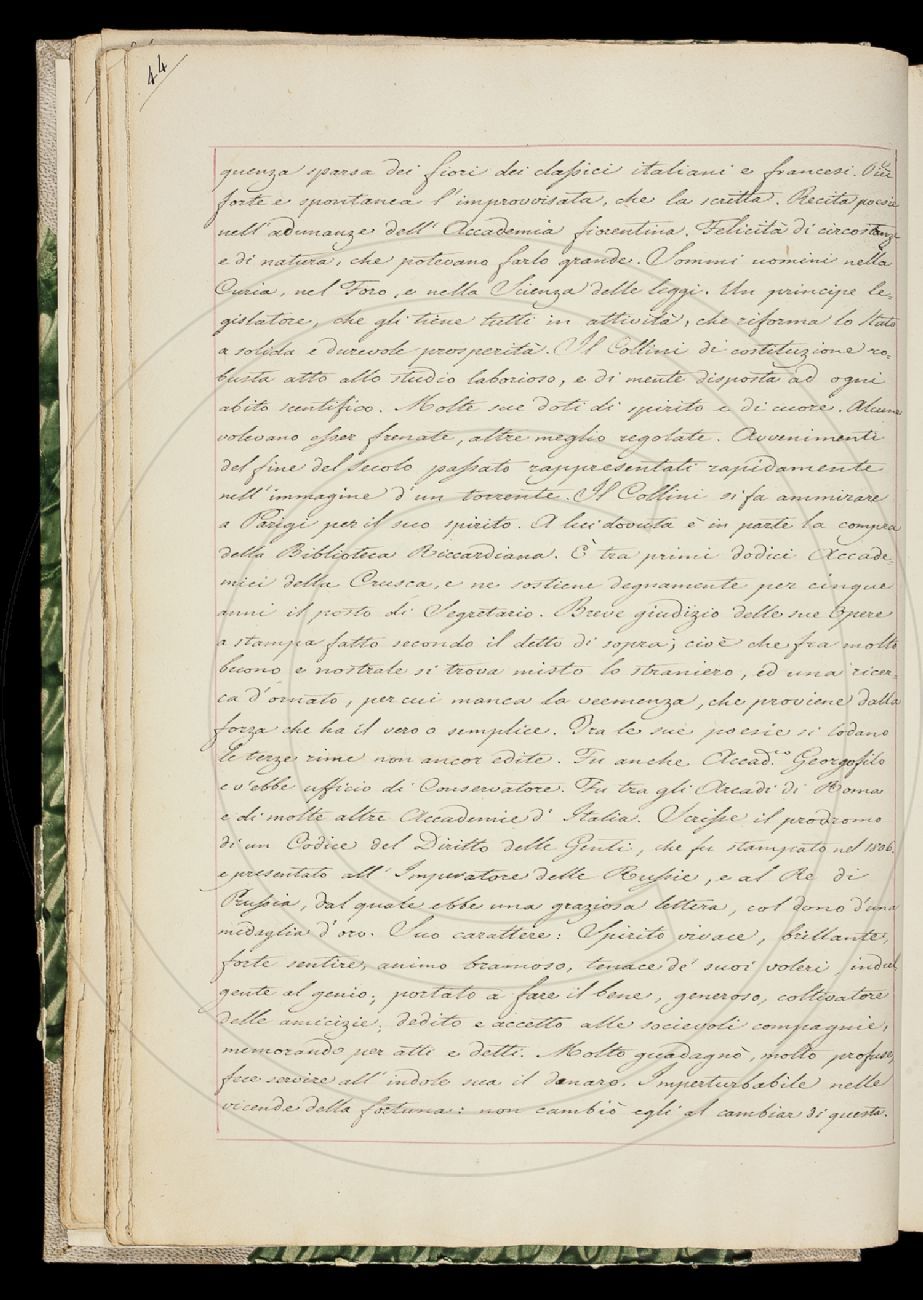 44
quenza sparsa dei fiori dei classici italiani e francesi. Più
forte e spontanea l'improvvisata, che la scritta. Recita poesie
nell'adunanze dell'Accademia fiorentina. Felicità di circostanze
e di natura, che potevano farlo grande. Sommi uomini nella
Curia, nel Foro, e nella Scienza delle leggi. Un principe le-
gislatore, che gli tiene tutti in attività, che riforma lo Stato
a solida e durevole prosperità. Il Collini di costituzione ro-
busta atto allo studio laborioso, e di mente disposta ad ogni
abito scentifico. Molte sue doti di spirito e di cuore. Alcune
volevano esser frenate, altre meglio regolate. Avvenimenti
del fine del secolo passato rappresentati rapidamente
nell'immagine d'un torrente. Il Collini si fa ammirare
a Parigi per il suo spirito. A lui dovuta è in parte la compra
della Biblioteca Riccardiana. È tra primi dodici Accade-
mici della Crusca, e ne sostiene degnamente per cinque
anni il posto di Segretario. Breve giudizio delle sue Opere
a stampa fatto secondo il detto di sopra; cioè che fra molto
buono e nostrale si trova misto lo straniero, ed una ricer-
ca d'ornato, per cui manca la veemenza, che proviene dalla
forza che ha il vero o semplice. Tra le sue poesie si lodano
le terze rime non ancor edite. Fu anche Accad.co Georgofilo
e v'ebbe uffizio di Conservatore. Fu tra gli Arcadi di Roma
e di molte altre Accademie d'Italia. Scrisse il prodromo
di un Codice del Diritto delle Genti, che fu stampato nel 1806.
e presentato all'Imperatore delle Russie, e al Re di
Prussia, dal quale ebbe una graziosa lettera, col dono d'una
medaglia d'oro. Suo carattere: Spirito vivace, brillante,
forte sentire, animo bramoso, tenace de' suoi voleri, indul
gente al genio; portato a fare il bene, generoso, coltivatore
delle amicizie, dedito e accetto alle socievoli compagnie,
memorando per atti e detti. Molto guadagnò, molto profuse,
fece servire all'indole sua il danaro. Imperturbabile nelle
vicende della fortuna: non cambiò egli al cambiar di questa.